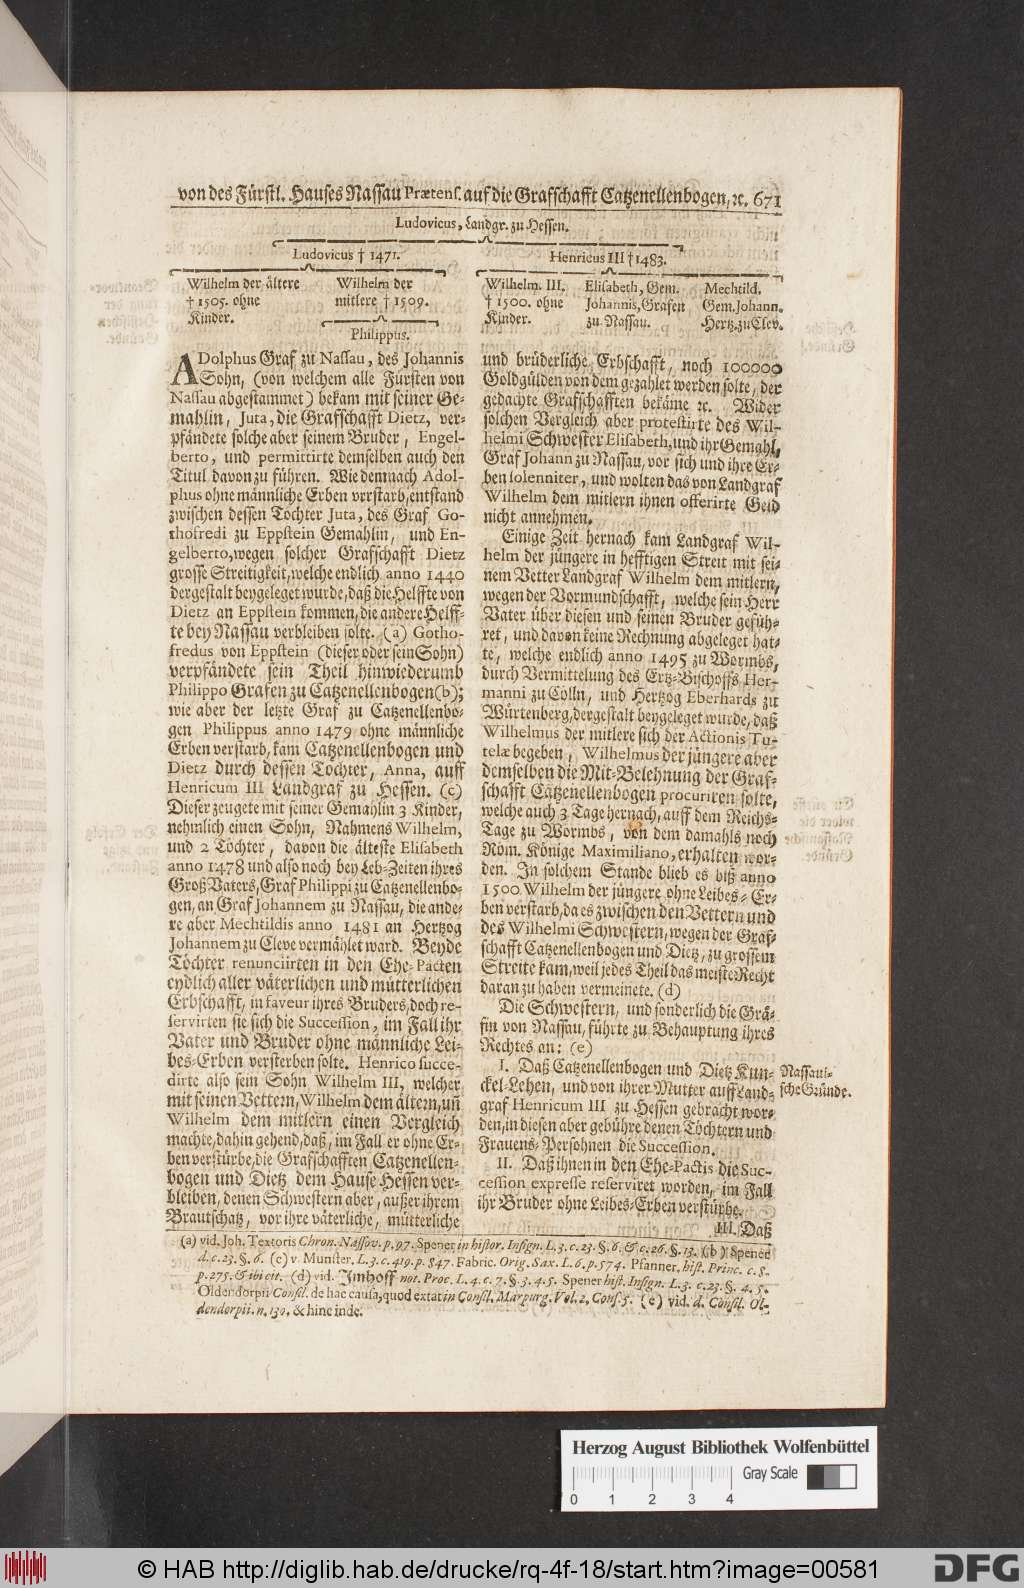 von des Fürstl. Hauses Nassau Prætens. auf die Grafschafft Catzenellenbogen, ꝛc. 671
Ludovicus, Landgr. zu Hessen.
Ludovicus † 1471.
Henricus III † 1483.
Wilhelm der ältere
† 1505. ohne
Kinder.
Wilhelm der
mitlere † 1509.
Philippus.
Wilhelm. III.
† 1500. ohne
Kinder.
Elisabeth, Gem.
Johannis, Grafen
zu Nassau.
Mechtild.
Gem. Johann.
Hertz. zu Clev.
ADolphus Graf zu Nassau, des Johannis
Sohn, (von welchem alle Fürsten von
Nassau abgestammet) bekam mit seiner Ge-
mahlin, Juta, die Grafschafft Dietz, ver-
pfändete solche aber seinem Bruder, Engel-
berto, und permittirte demselben auch den
Titul davon zu führen. Wie demnach Adol-
phus ohne männliche Erben verstarb, entstand
zwischen dessen Tochter Juta, des Graf Go-
thofredi zu Eppstein Gemahlin, und En-
gelberto, wegen solcher Grafschafft Dietz
grosse Streitigkeit, welche endlich anno 1440
dergestalt beygeleget wurde, daß die Helffte von
Dietz an Eppstein kommen, die andere Helff-
te bey Nassau verbleiben solte. (a) Gotho-
fredus von Eppstein (dieser oder sein Sohn)
verpfändete sein Theil hinwiederumb
Philippo Grafen zu Catzenellenbogen (b);
wie aber der letzte Graf zu Catzenellenbo-
gen Philippus anno 1479 ohne männliche
Erben verstarb, kam Catzenellenbogen und
Dietz durch dessen Tochter, Anna, auff
Henricum III Landgraf zu Hessen. (c)
Dieser zeugete mit seiner Gemahlin 3 Kinder,
nehmlich einen Sohn, Nahmens Wilhelm,
und 2 Töchter, davon die älteste Elisabeth
anno 1478 und also noch bey Leb-Zeiten ihres
Groß Vaters, Graf Philippi zu Catzenellenbo-
gen, an Graf Johannem zu Nassau, die ande-
re aber Mechtildis anno 1481 an Hertzog
Johannem zu Cleve vermählet ward. Beyde
Töchter renunciirten in den Ehe-Pacten
eydlich aller väterlichen und mütterlichen
Erbschafft, in faveur ihres Bruders, doch re-
servirten sie sich die Succession, im Fall ihr
Vater und Bruder ohne männliche Lei-
bes-Erben versterben solte. Henrico succe-
dirte also sein Sohn Wilhelm III, welcher
mit seinen Vettern, Wilhelm dem ältern, uñ
Wilhelm dem mitlern einen Vergleich
machte, dahin gehend, daß, im Fall er ohne Er-
ben verstürbe, die Grafschafften Catzenellen-
bogen und Dietz dem Hause Hessen ver-
bleiben, denen Schwestern aber, außer ihrem
Brautschatz, vor ihre väterliche, mütterliche
und brüderliche Erbschafft, noch 100000
Goldgülden von dem gezahlet werden solte, der
gedachte Grafschafften bekäme ꝛc. Wider
solchen Vergleich aber protestirte des Wil-
helmi Schwester Elisabeth, und ihr Gemahl,
Graf Johann zu Nassau, vor sich und ihre Er-
ben solenniter, und wolten das von Landgraf
Wilhelm dem mitlern ihnen offerirte Geld
nicht annehmen.
Einige Zeit hernach kam Landgraf Wil-
helm der jüngere in hefftigen Streit mit sei-
nem Vetter Landgraf Wilhelm dem mitlern,
wegen der Vormundschafft, welche sein Herr
Vater über diesen und seinen Bruder gefüh-
ret, und davon keine Rechnung abgeleget hat-
te, welche endlich anno 1495 zu Wormbs,
durch Vermittelung des Ertz-Bischoffs Her-
manni zu Cölln, und Hertzog Eberhards zu
Würtenberg, dergestalt beygeleget wurde, daß
Wilhelmus der mitlere sich der Actionis Tu-
telæ begeben, Wilhelmus der jüngere aber
demselben die Mit-Belehnung der Graf-
schafft Catzenellenbogen procuriren solte,
welche auch 3 Tage hernach, auff dem Reichs-
Tage zu Wormbs, von dem damahls noch
Röm. Könige Maximiliano, erhalten wor-
den. In solchem Stande blieb es biß anno
1500. Wilhelm der jüngere ohne Leibes-Er-
ben verstarb, da es zwischen den Vettern und
des Wilhelmi Schwestern, wegen der Graf-
schafft Catzenellenbogen und Dietz, zu grossem
Streite kam, weil jedes Theil das meiste Recht
daran zu haben vermeinete. (d)
Die Schwestern, und sonderlich die Grä-
fin von Nassau, führte zu Behauptung ihres
Rechtes an: (e)
I. Daß Catzenellenbogen und Dietz Kun-
ckel-Lehen, und von ihrer Mutter auff Land-
graf Henricum III zu Hessen gebracht wor-
den, in diesen aber gebühre denen Töchtern und
Frauens-Persohnen die Succession.
II. Daß ihnen in den Ehe-Pactis die Suc-
cession expresse reserviret worden, im Fall
ihr Bruder ohne Leibes-Erben verstürbe.
III. Daß
Nassaui-
sche Gründe.
(a) vid. Joh. Textoris Chron. Nassov. p. 97. Spener in histor. Insign. L. 3. c. 23. §. 6. & c. 26. §. 13. (b) Spener
d. c. 23. §. 6. (c) v. Munster. L. 3. c. 419. p. 847. Fabric. Orig. Sax. L. 6. p. 574. Pfanner. hist. Princ. c. 8.
p. 275. & ibi cit. (d) vid. Imhoff not. Proc. L. 4. c. 7. §. 3. 4. 5. Spener hist. Insign. L. 3. c. 23. §. 4. 5.
Oldendorpii Consil. de hac causa, quod extat in Consil. Marpurg. Vol. 2. Cons. 5. (e) vid. d. Consil. Ol-
dendorpii. n. 130. & hinc inde.
Herzog August Bibliothek Wolfenbüttel
Gray Scale
0 1 2 3 4
© HAB http://diglib.hab.de/drucke/rq-4f-18/start.htm?image=00581
DFG